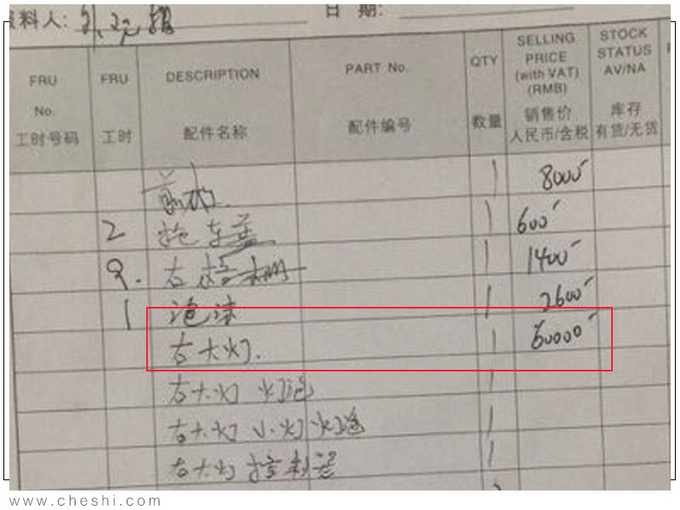 料人:
日 期:
FRU No. 工时号码
FRU 工时
DESCRIPTION 配件名称
PART No. 配件编号
QTY 数量
SELLING PRICE (with VAT) (RMB) 销售价 人民币/含税
STOCK STATUS AV/NA 库存 有货/无货
1 8000
2 拖车盖 1 600
9. 右 1 1400
1 泡沫 1 2600
右大灯. 1 60000
右大灯 灯泡 1
右大灯 小灯 灯泡 1
右大灯 控制器 1
www.cheshi.com